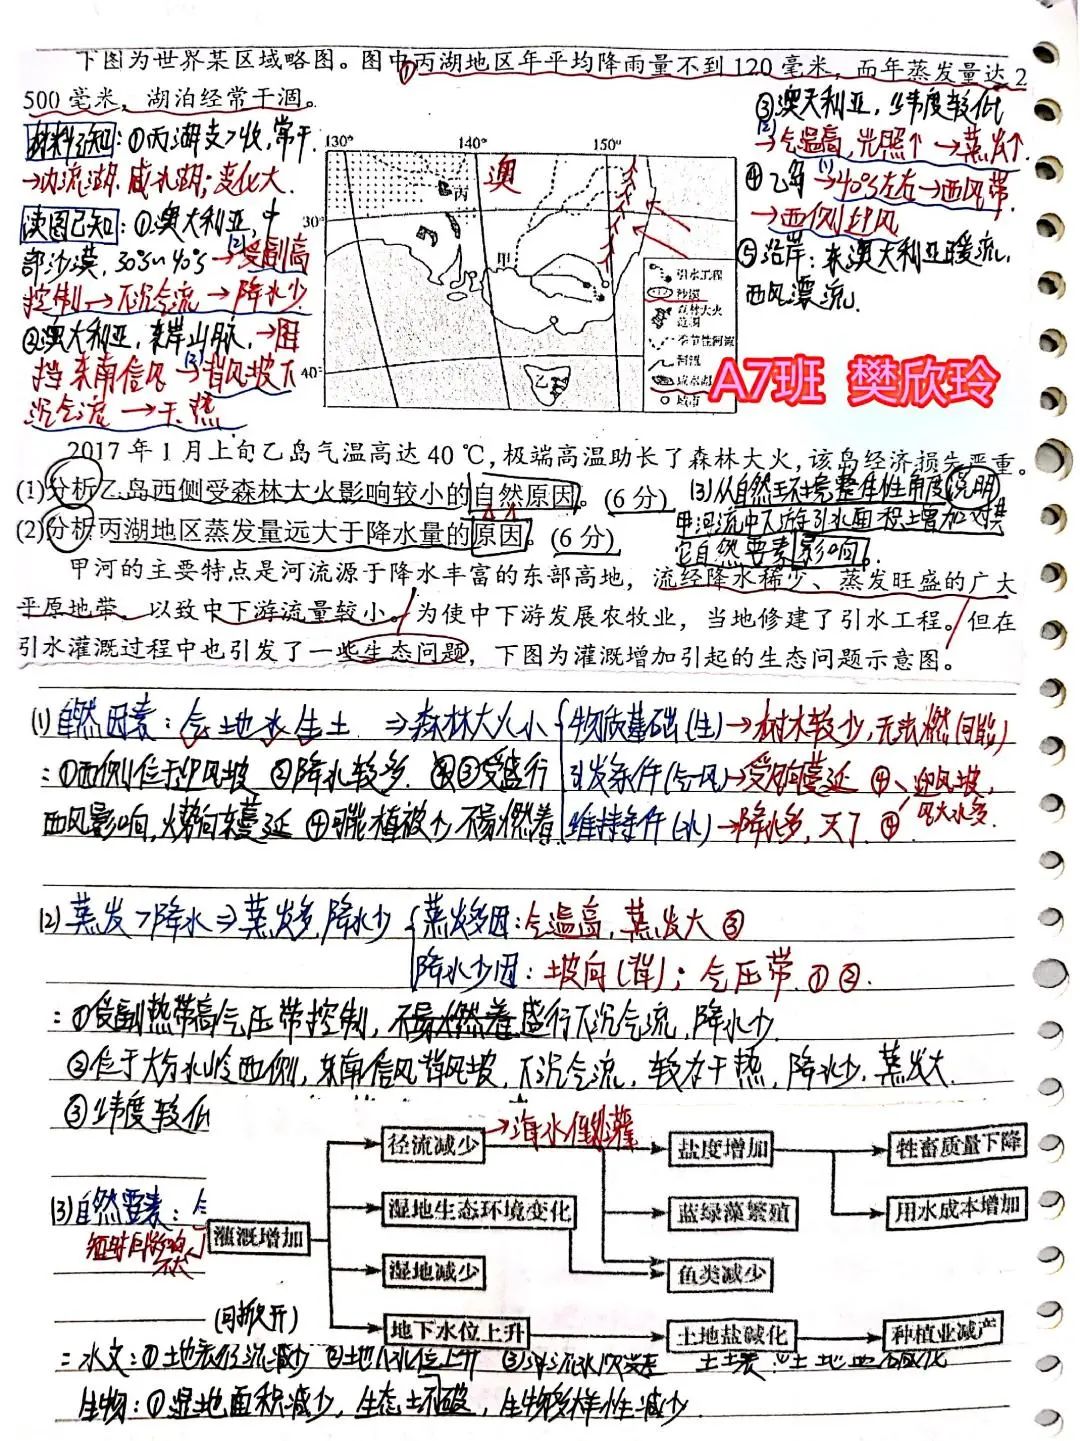 下图为世界某区域略图。图中①丙湖地区年平均降雨量不到120毫米，而年蒸发量达2
500毫米，湖泊经常干涸。
材料已知：①丙湖支>收，常干.
→内流湖.咸水湖；变化大.
读图已知：①.澳大利亚，中
部沙漠，30°S~40°S→受副高
控制→下沉气流→降水少.
②澳大利亚，东岸山脉，→阻
挡东南信风→背风坡下
沉气流→干.热
130°
140°
150°
30°
40°
澳
丙
甲
乙
引水工程
沙漠
森林大火
范围
季节性河流
河流
咸水湖
城市
③澳大利亚，纬度较低
→气温高，光照↑→蒸发↑.
④乙岛→40°S左右→西风带
→西侧迎风
⑤沿岸：东澳大利亚暖流，
西风漂流.
A7班 樊欣玲
2017年1月上旬乙岛气温高达40℃，极端高温助长了森林大火，该岛经济损失严重。
(1)分析乙岛西侧受森林大火影响较小的自然原因。(6分)
(2)分析丙湖地区蒸发量远大于降水量的原因。(6分)
(3)从自然环境整体性角度说明
甲河流中下游引水面积增加对其
它自然要素影响.
甲河的主要特点是河流源于降水丰富的东部高地，流经降水稀少、蒸发旺盛的广大
平原地带。以致中下游流量较小。为使中下游发展农牧业，当地修建了引水工程。但在
引水灌溉过程中也引发了一些生态问题，下图为灌溉增加引起的生态问题示意图。
(1)自然因素：气地水生土⇒森林大火小{物质基础(生)→树木较少，无法燃(可能)
=①西侧位于迎风坡 ②降水较多. ③受盛行 引发条件(气-风)→受风向蔓延 ④、迎风坡，
西风影响，火势向东蔓延 ④可能植被少不易燃着 维持条件(水)→降水多，灭了. 风大水多.
(2)蒸发>降水⇒蒸发多，降水少{蒸发多因：气温高，蒸发大③
降水少因：坡向(背)；气压带.①②.
=①受副热带高气压带控制，盛行下沉气流，降水少
②位于大分水岭西侧，东南信风背风坡，下沉气流，较为干热，降水少，蒸发大.
③纬度较低
(3)自然要素：
短时间影响
不大
(可掀开)
灌溉增加
径流减少
→海水倒灌
盐度增加
牲畜质量下降
湿地生态环境变化
蓝绿藻繁殖
用水成本增加
湿地减少
鱼类减少
地下水位上升
土地盐碱化
种植业减产
=水文：①地表径流减少 ②地下水位上升
生物：①湿地面积减少，生物多样性减少.